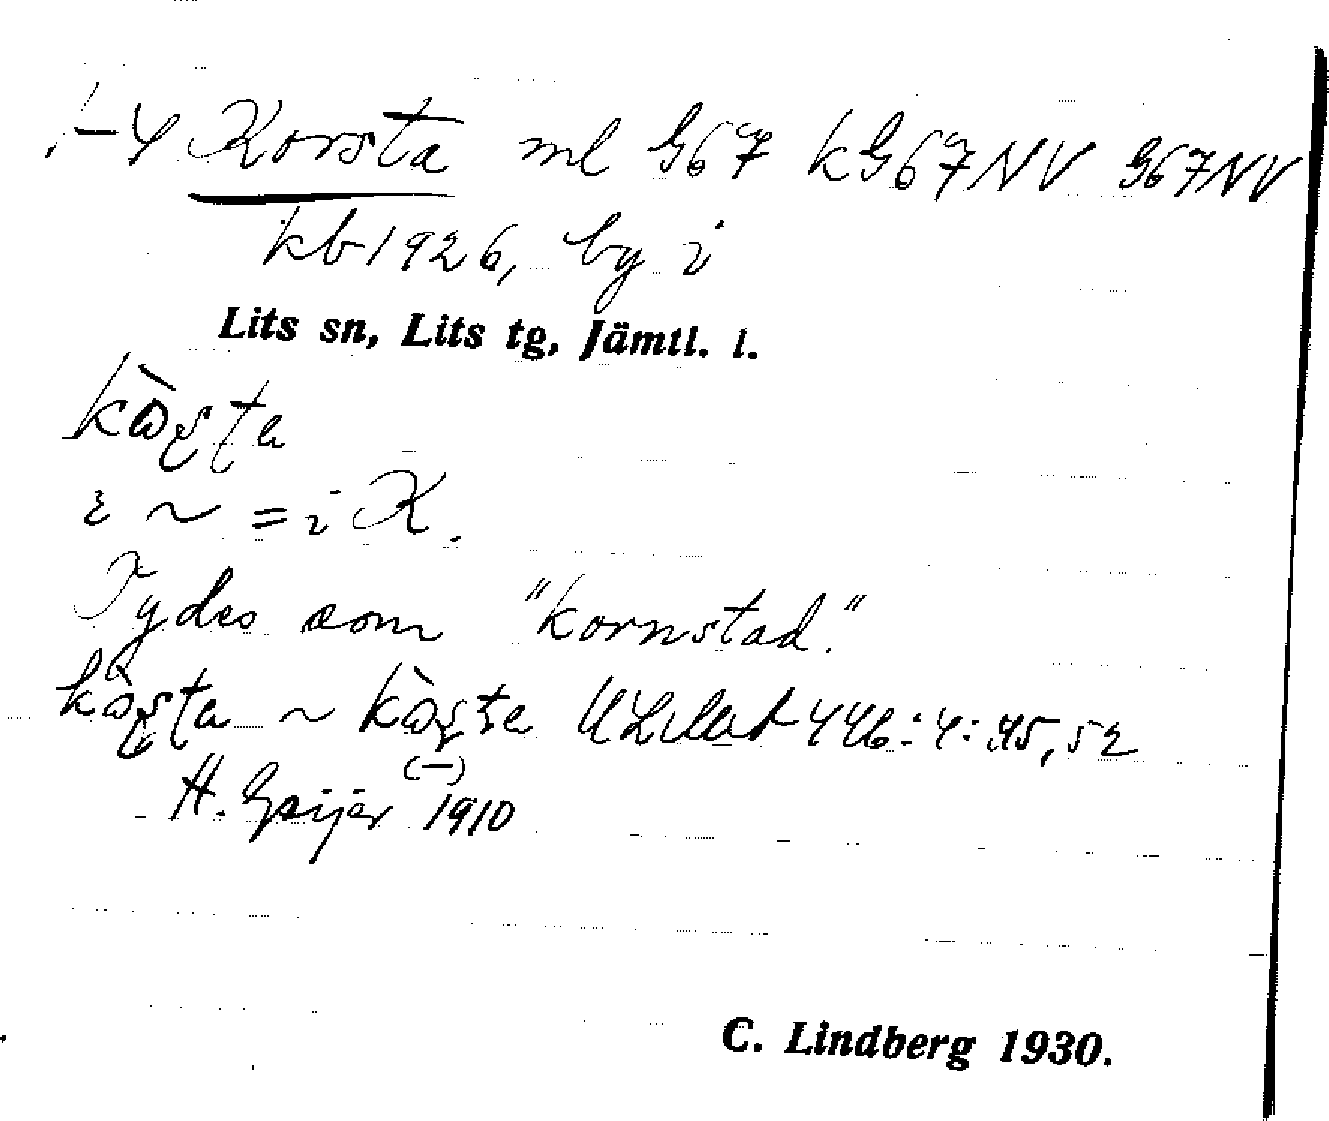 1-4 Korsta ml G67 kG67NV G67NV
kb1926, by i
Lits sn, Lits tg, Jämtl. l.
i ~ = i K.
Tydes som "kornstad."
446:4:45,52
(-)
H. Geijer 1910
C. Lindberg 1930.